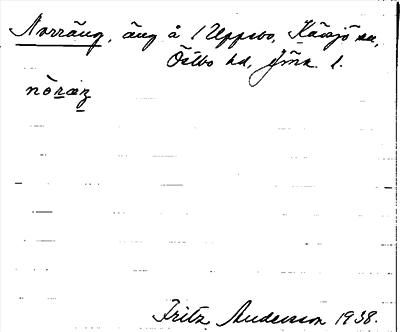 Norräng, äng å 1 Uppsbo, Kävsjö sn,
Östbo hd, Jönk. l.
nòræŋ
Fritz Anderson 1938.